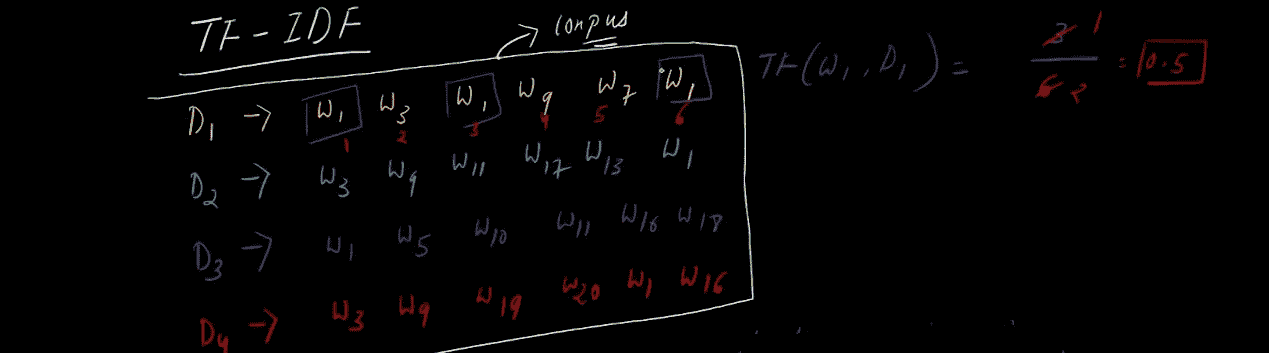 TF-IDF
corpus
D1 → W1 W3 W1 W9 W7 W1
1 2 3 4 5 6
D2 → W3 W9 W11 W17 W13 W1
D3 → W1 W5 W10 W11 W16 W18
D4 → W3 W9 W19 W20 W1 W16
TF(W1, D1) = 3 1 / 6 2 = 0.5